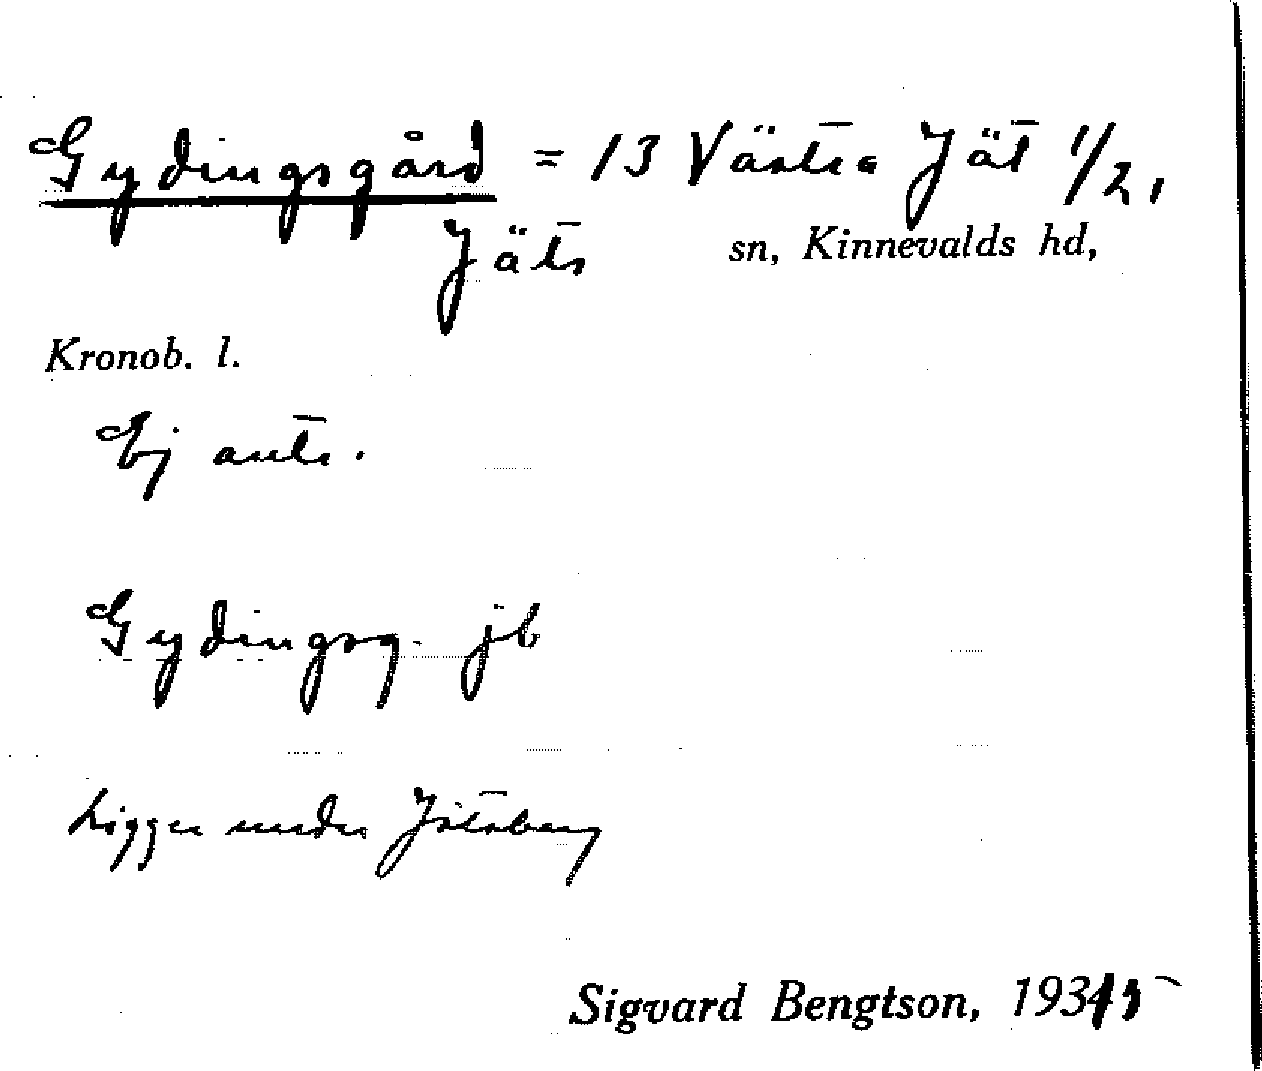 Gydingsgård = 13 Västra Jät 1/2,
Jäts sn, Kinnevalds hd,
Kronob. l.
Ej antr.
Gydingsg. jb
Ligger under Jätsberg
Sigvard Bengtson,